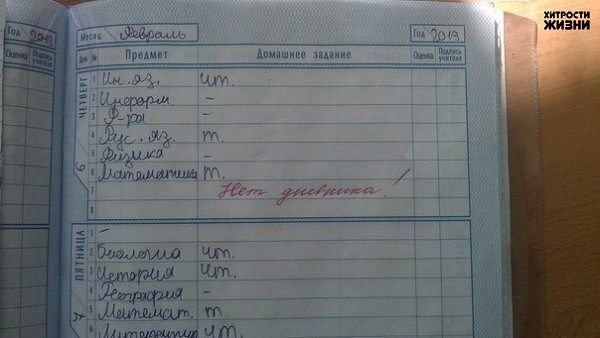 ХИТРОСТИ
ЖИЗНИ
Год 2013
Оценка Подпись учителя
Месяц Февраль Год 2013
Дни № Предмет Домашнее задание Оценка Подпись учителя
ЧЕТВЕРГ
6
1 Ин. яз. чт.
2 Информ -
3 Ф-ра -
4 Рус. яз. т.
5 Физика -
6 Математика т.
7 Нет дневника!
8
ПЯТНИЦА
7
1 -
2 Биология чт.
3 История чт.
4 География -
5 Математ. т.
6 Литература чт.